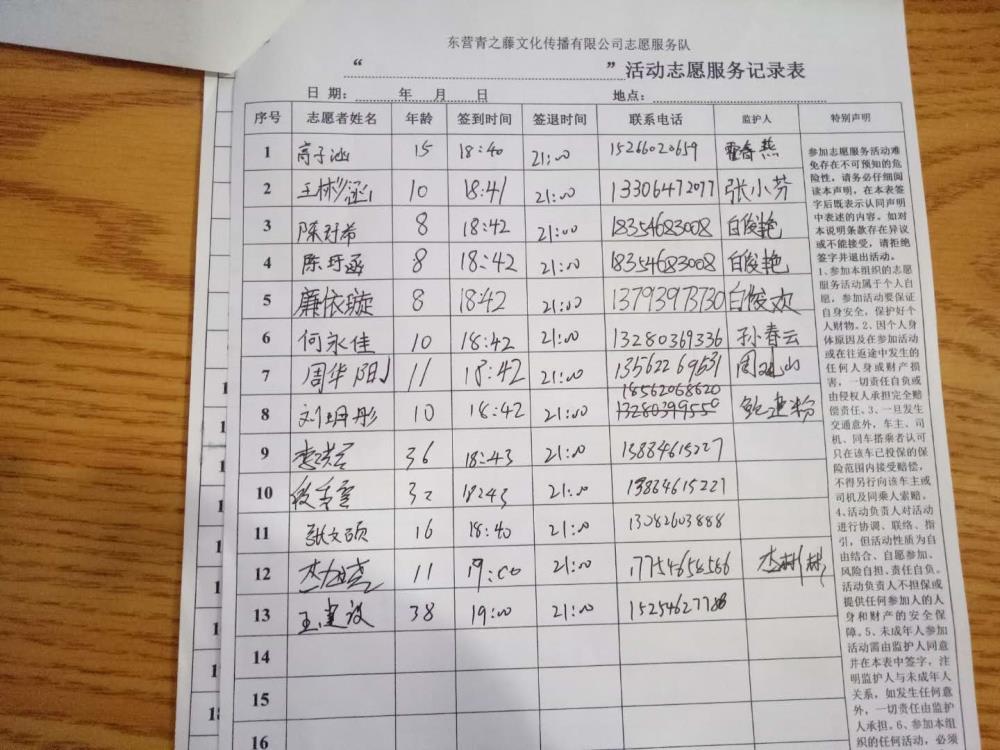 东营青之藤文化传播有限公司志愿服务队
“ ”活动志愿服务记录表
日 期: 年 月 日 地点:
序号 志愿者姓名 年龄 签到时间 签退时间 联系电话 监护人 特别声明
1 高子涵 15 18:40 21:00 15266020659 霍春燕
2 王彬涵 10 18:41 21:00 13306472077 张小芬
3 陈对希 8 18:42 21:00 18354683008 白俊艳
4 陈玗函 8 18:42 21:00 18354683008 白俊艳
5 廉依璇 8 18:42 21:00 13793973730 白俊欢
6 何永佳 10 18:42 21:00 13280369336 孙春云
7 周华阳 11 18:42 21:00 13562269531
18562068620
8 刘珊彤 10 18:42 21:00 13280399550
9 36 18:43 21:00 13884615227
10 段秀雪 32 18:43 21:00 13864615221
11 张文硕 16 18:40 21:00 13082603888
12 11 19:00 21:00 17754656566
13 王建设 38 19:00 21:00 15254627788
14
15
16
参加志愿服务活动难
免存在不可预知的危
险性，请务必仔细阅
读本声明，在本表签
字后既表示认同声明
中表述的内容。如对
本说明条款存在异议
或不能接受，请拒绝
签字并退出活动。
1、参加本组织的志愿
服务活动属于个人自
愿，参加活动要保证
自身安全，保护好个
人财物。2、因个人身
体原因及在参加活动
或在往返途中发生的
任何人身或财产损
害，一切责任自负或
由侵权人承担完全赔
偿责任。3、一旦发生
交通意外，车主、司
机、同车搭乘者认可
只在该车已投保的保
险范围内接受赔偿，
不得另行向该车主或
司机及同乘人索赔。
4、活动负责人对活动
进行协调、联络、指
引，但活动性质为自
由结合、自愿参加、
风险自担、责任自负。
活动负责人不担保或
提供任何参加人的人
身和财产的安全保
障。5、未成年人参加
活动需由监护人同意
并在本表中签字，注
明监护人与未成年人
关系，如发生任何意
外，一切责任由监护
人承担。6、参加本组
织的任何活动，必须